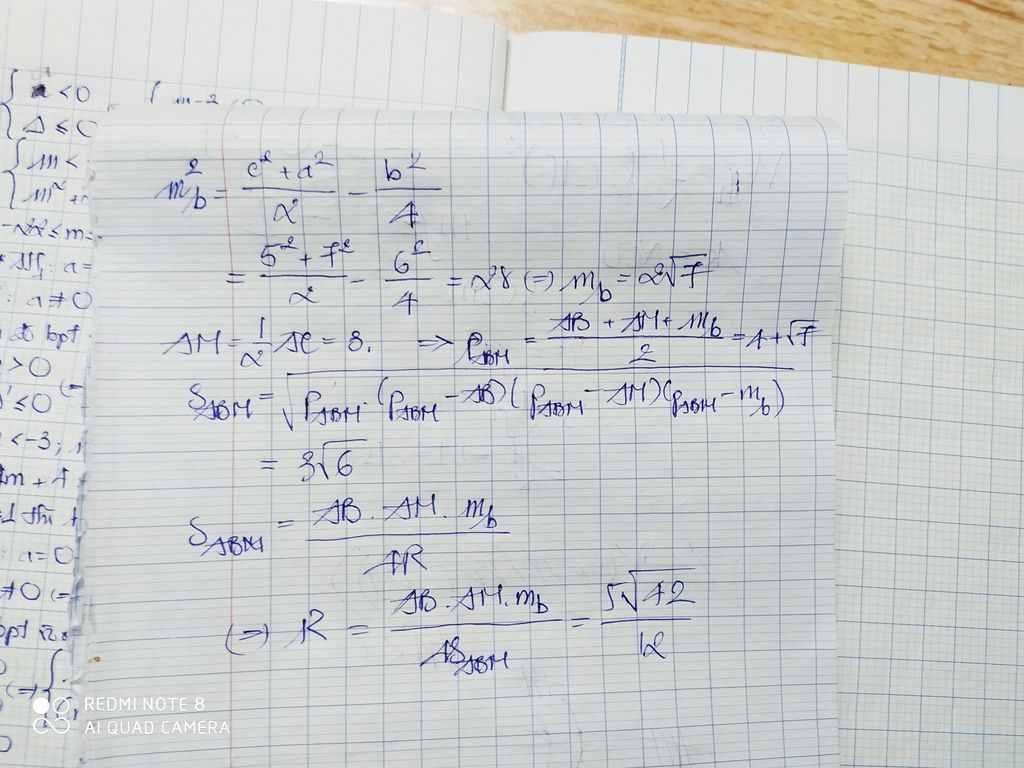 m_b² = (c² + a²)/2 − b²/4
= (5² + 7²)/2 − 6²/4 = 28 (=) m_b = 2√7
AM = 1/2 AC = 3. => P_ABM = (AB + AM + m_b)/2 = 4 + √7
S_ABM = √(P_ABM · (P_ABM − AB)(P_ABM − AM)(P_ABM − m_b))
= 3√6
S_ABM = (AB . AM . m_b)/4R
(=) R = (AB . AM . m_b)/4S_ABM = 5√42/12
a < 0
Δ ≤ 0
m <
-22 ≤ m
a =
: a ≠ 0
bpt
> 0
≤ 0
< -3 ;
m + 4
: a = 0
≠ 0 (=
bpt
(=)
REDMI NOTE 8
AI QUAD CAMERA